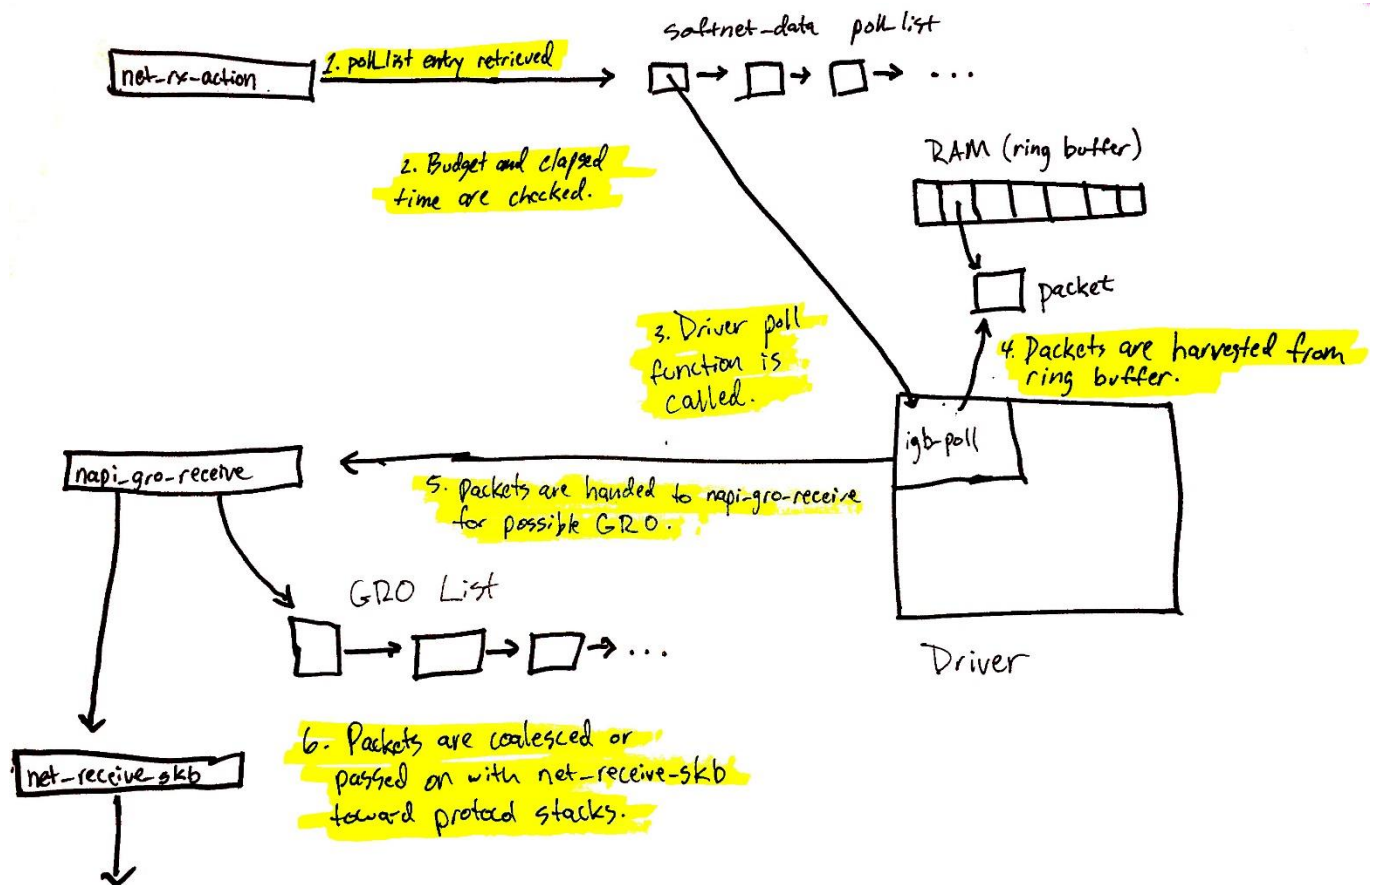 softnet_data poll_list
net_rx_action
1. poll_list entry retrieved
...
2. Budget and elapsed
time are checked.
RAM (ring buffer)
packet
3. Driver poll
function is
called.
4. Packets are harvested from
ring buffer.
igb_poll
napi_gro_receive
5. packets are handed to napi_gro_receive
for possible GRO.
GRO List
...
Driver
6. Packets are coalesced or
passed on with net_receive_skb
toward protocol stacks.
net_receive_skb